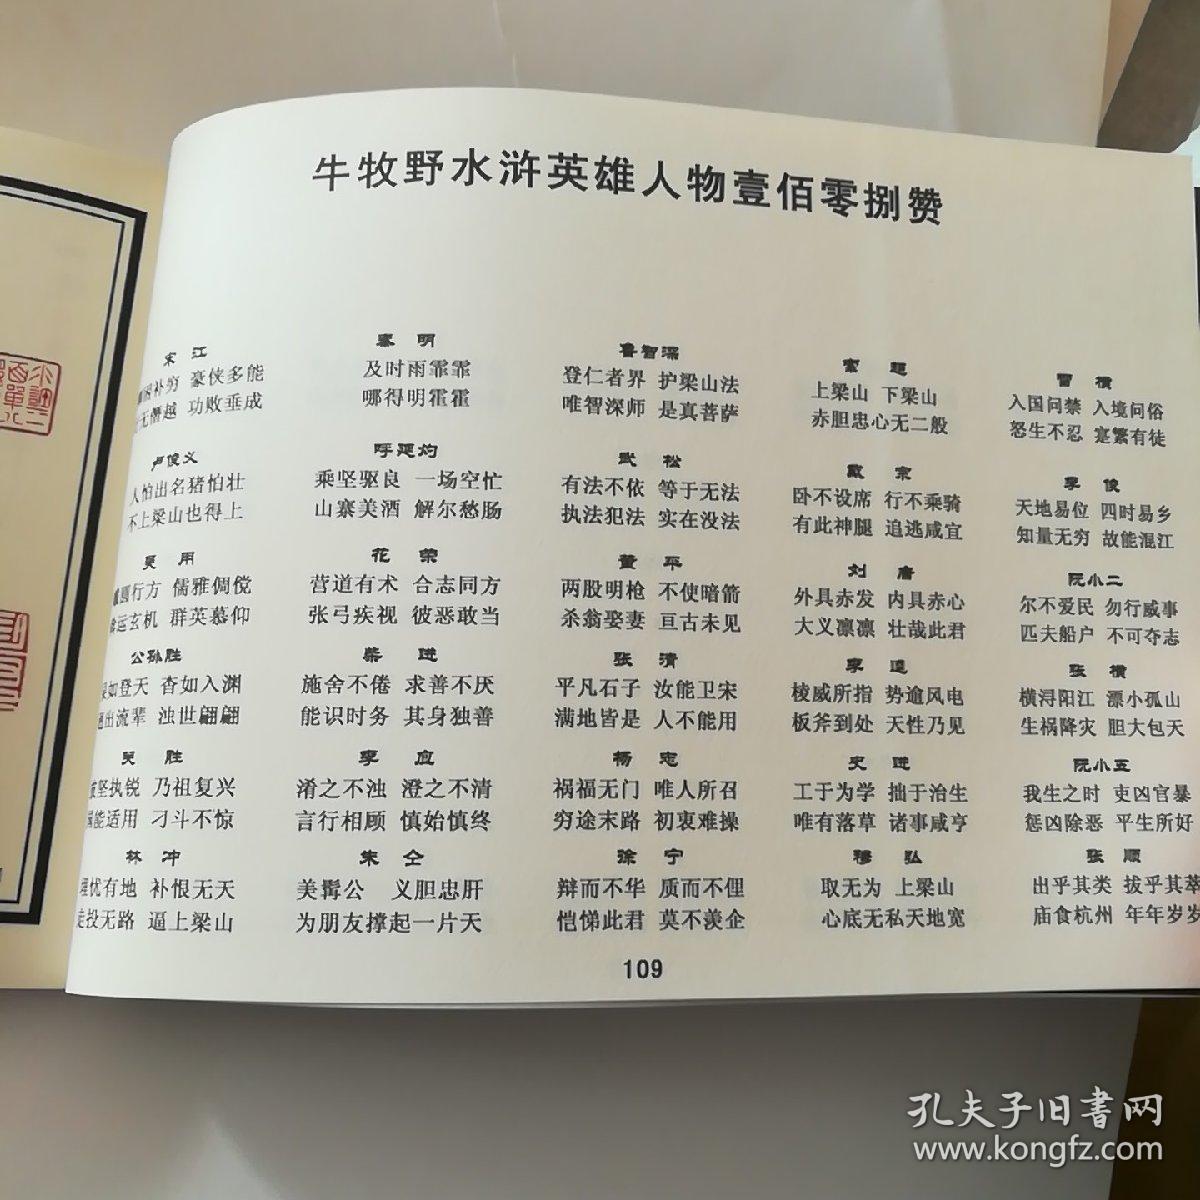 牛牧野水浒英雄人物壹佰零捌赞
宋江
补穷 豪侠多能
无僭越 功败垂成
卢俊义
人怕出名猪怕壮
不上梁山也得上
吴用
行方 儒雅倜傥
运玄机 群英慕仰
公孙胜
如登天 杳如入渊
出流辈 浊世翩翩
关胜
坚执锐 乃祖复兴
能适用 刁斗不惊
林冲
忧有地 补恨无天
走投无路 逼上梁山
秦明
及时雨霏霏
哪得明霍霍
呼延灼
乘坚驱良 一场空忙
山寨美酒 解尔愁肠
花荣
营道有术 合志同方
张弓疾视 彼恶敢当
柴进
施舍不倦 求善不厌
能识时务 其身独善
李应
淆之不浊 澄之不清
言行相顾 慎始慎终
朱仝
美髯公 义胆忠肝
为朋友撑起一片天
鲁智深
登仁者界 护梁山法
唯智深师 是真菩萨
武松
有法不依 等于无法
执法犯法 实在没法
董平
两股明枪 不使暗箭
杀翁娶妻 亘古未见
张清
平凡石子 汝能卫宋
满地皆是 人不能用
杨志
祸福无门 唯人所召
穷途末路 初衷难操
徐宁
辩而不华 质而不俚
恺悌此君 莫不羡企
索超
上梁山 下梁山
赤胆忠心无二般
戴宗
卧不设席 行不乘骑
有此神腿 追逃咸宜
刘唐
外具赤发 内具赤心
大义凛凛 壮哉此君
李逵
棱威所指 势逾风电
板斧到处 天性乃见
史进
工于为学 拙于治生
唯有落草 诸事咸亨
穆弘
取无为 上梁山
心底无私天地宽
雷横
入国问禁 入境问俗
怒生不忍 寔繁有徒
李俊
天地易位 四时易乡
知量无穷 故能混江
阮小二
尔不爱民 勿行威事
匹夫船户 不可夺志
张横
横浔阳江 漂小孤山
生祸降灾 胆大包天
阮小五
我生之时 吏凶官暴
惩凶除恶 平生所好
张顺
出乎其类 拔乎其萃
庙食杭州 年年岁岁
109
孔夫子旧书网
www.kongfz.com